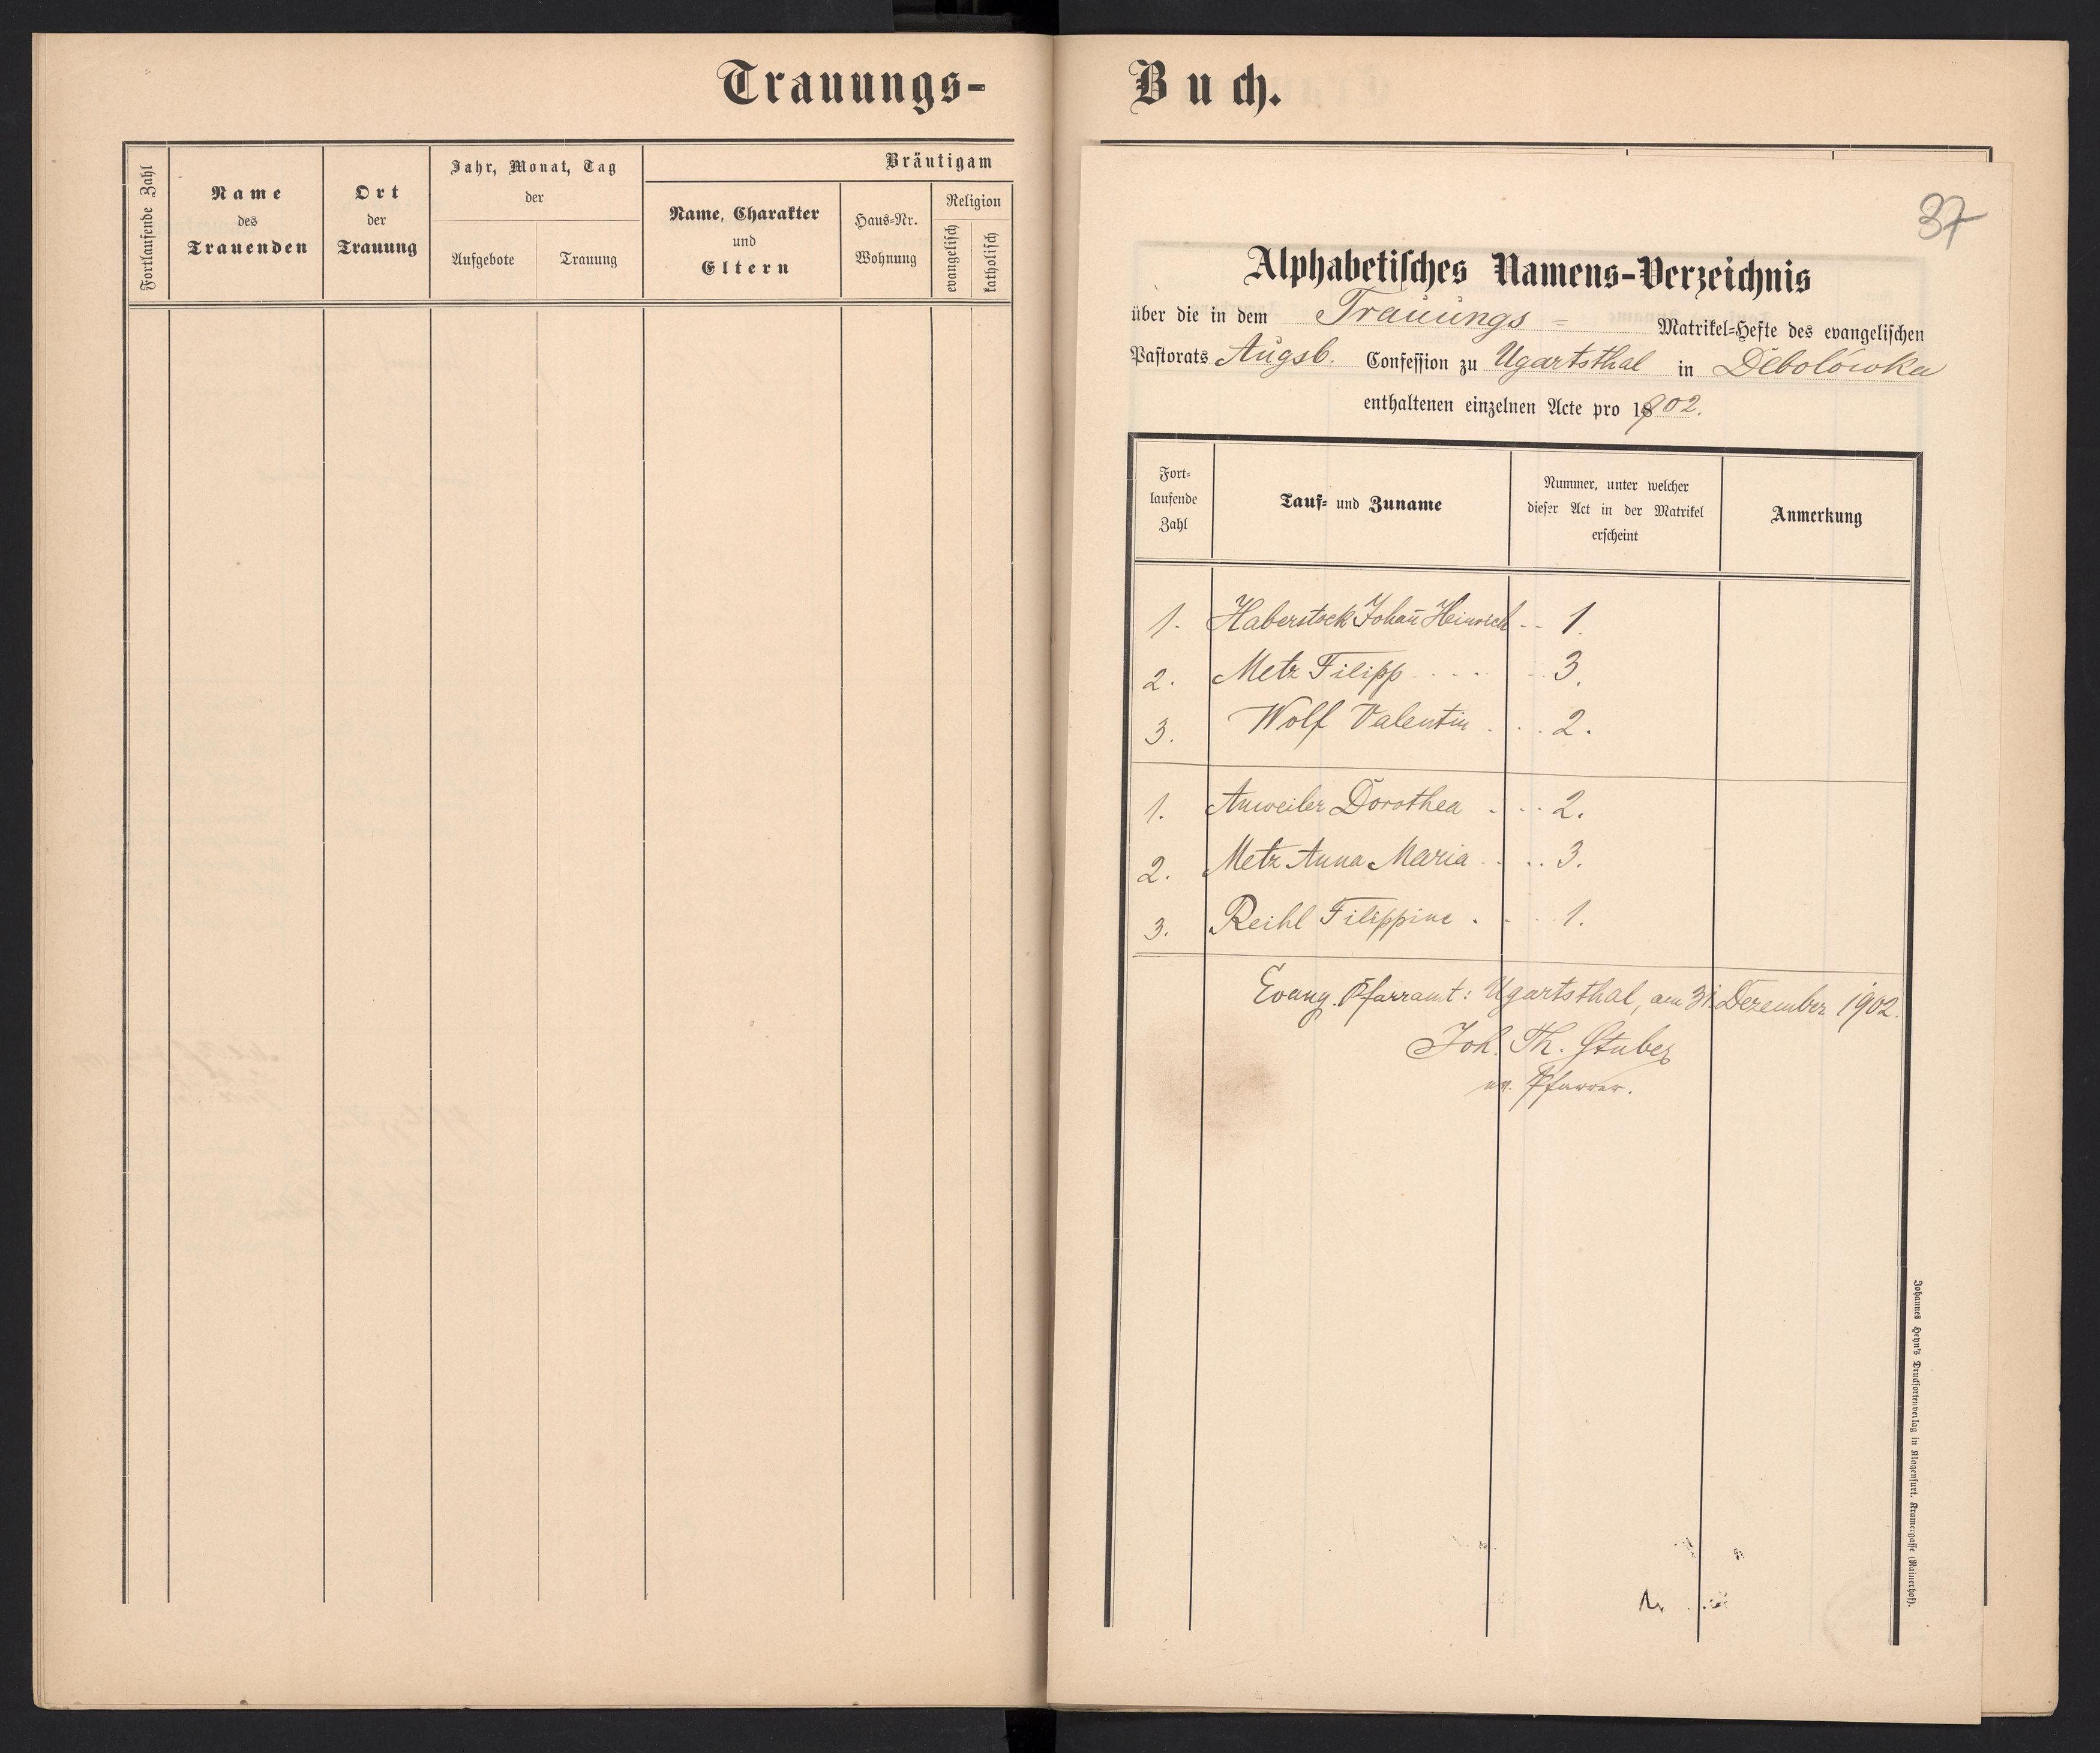 Trauungs-
Fortlaufende Zahl
Name
des
Trauenden
Ort
der
Trauung
Jahr, Monat, Tag
der
Aufgebote
Trauung
Bräutigam
Name, Charakter
und
Eltern
Haus-Nr.
Wohnung
Religion
evangelisch
katholisch
Buch.
37
Alphabetisches Namens-Verzeichnis
über die in dem Trauungs = Matrikel-Hefte des evangelischen
Pastorats Augsb. Confession zu Ugartsthal in Debolówka
enthaltenen einzelnen Acte pro 1902.
Fort-
laufende
Zahl
Tauf- und Zuname
Nummer, unter welcher
dieser Act in der Matrikel
erscheint
Anmerkung
1. Haberstock Johan̄ Heinrich -- 1.
2. Metz Filipp . . . . . . 3.
3. Wolf Valentin . . . 2.
1. Anweiler Dorothea . . . 2.
2. Metz Anna Maria . . . . 3.
3. Reihl Filippine . . . . 1.
Evang. Pfarramt: Ugartsthal, am 31. Dezember 1902.
Joh. Th. Stuber
ev. Pfarrer.
Johannes Heyn's Drucksortenverlag in Klagenfurt, Kramergasse (Rainerhof).